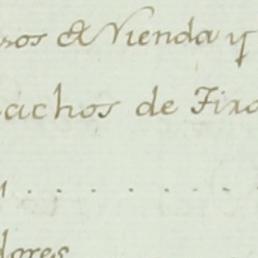 sos de Vienda y
achos de Fixo
. . . . . . . .
dores